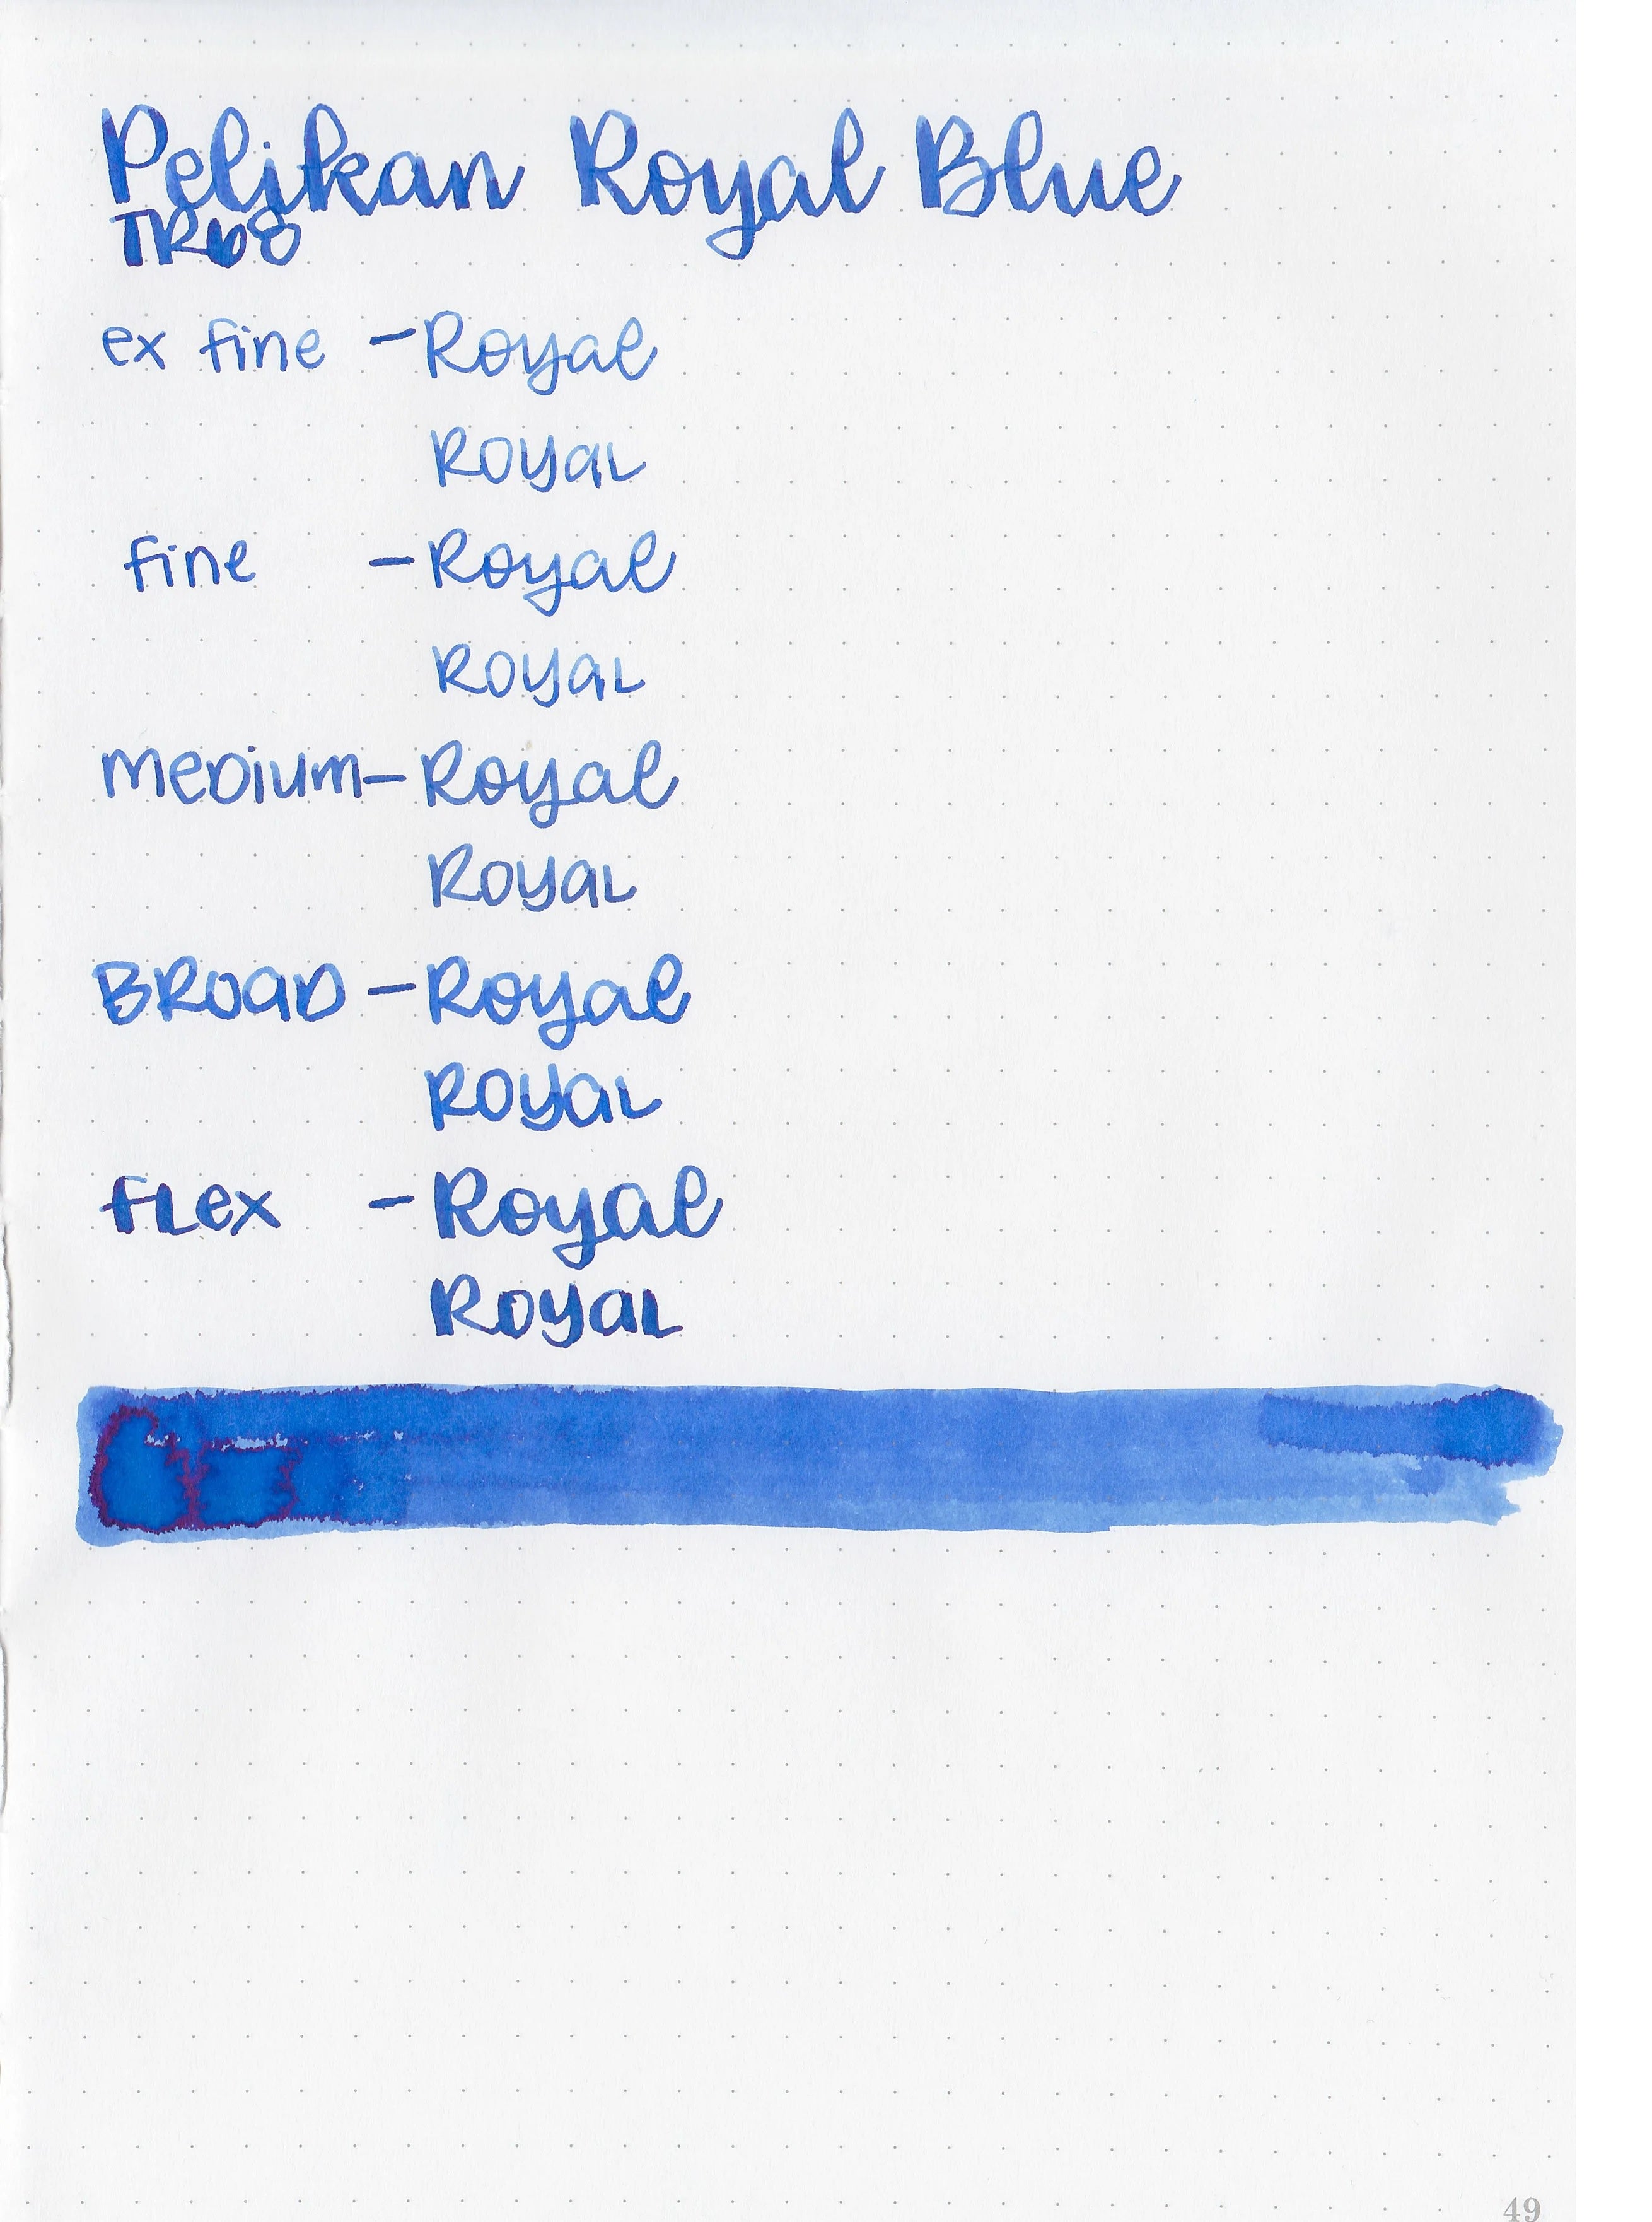 Pelikan Royal Blue
TR68
ex fine - Royal
Royal
fine - Royal
Royal
medium - Royal
Royal
Broad - Royal
Royal
flex - Royal
Royal
49